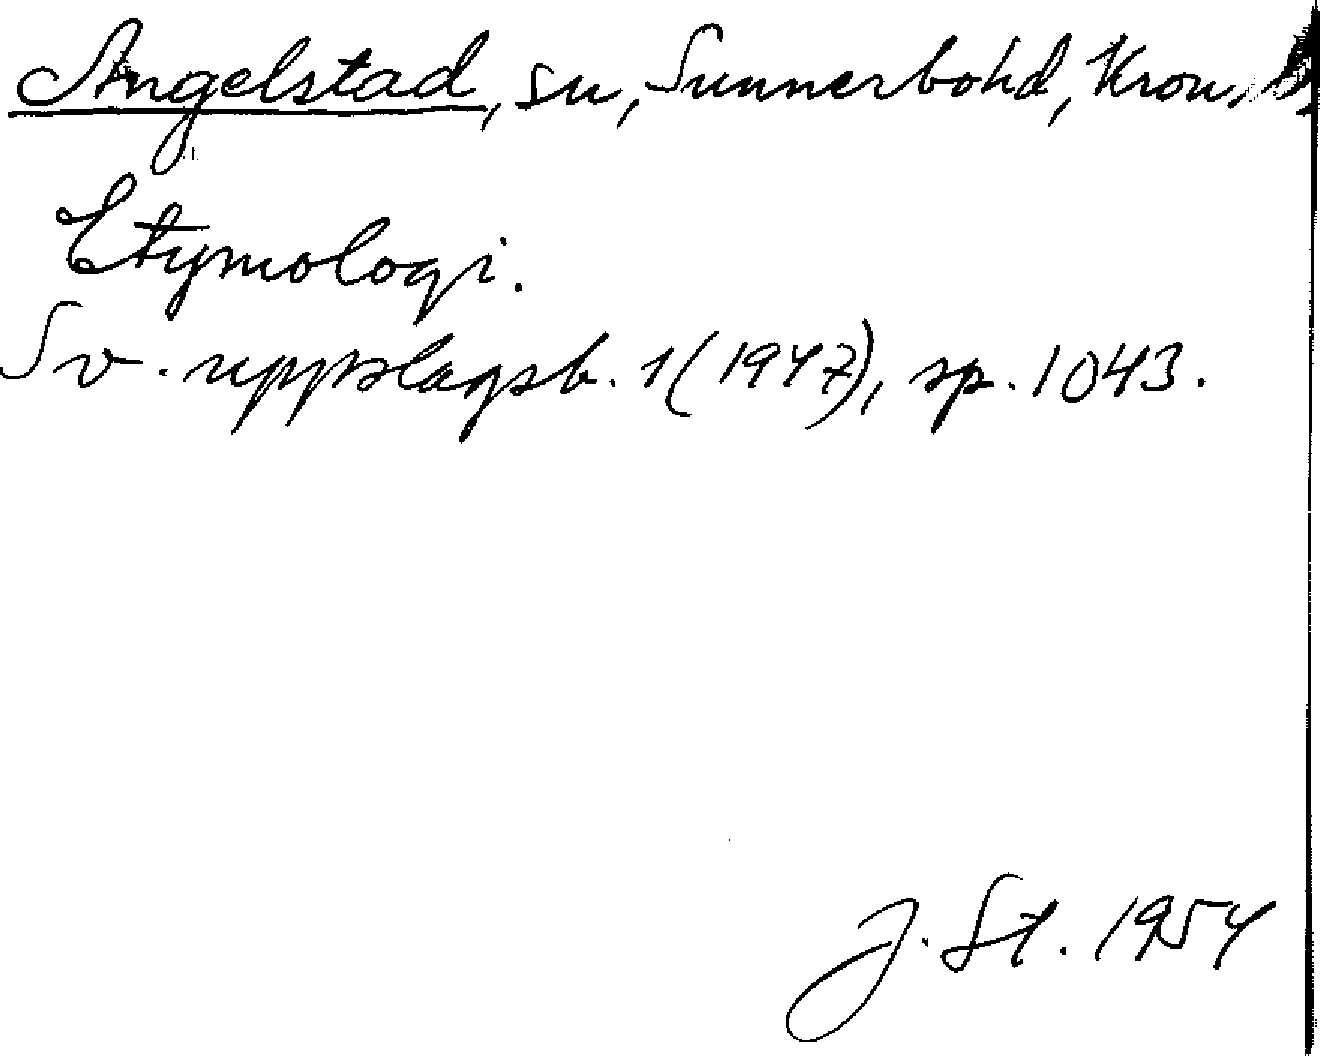 Angelstad, sn, Sunnerbohd, Kron.
Etymologi.
Sv. uppslagsb. 1 (1947), sp. 1043.
J. St. 1954